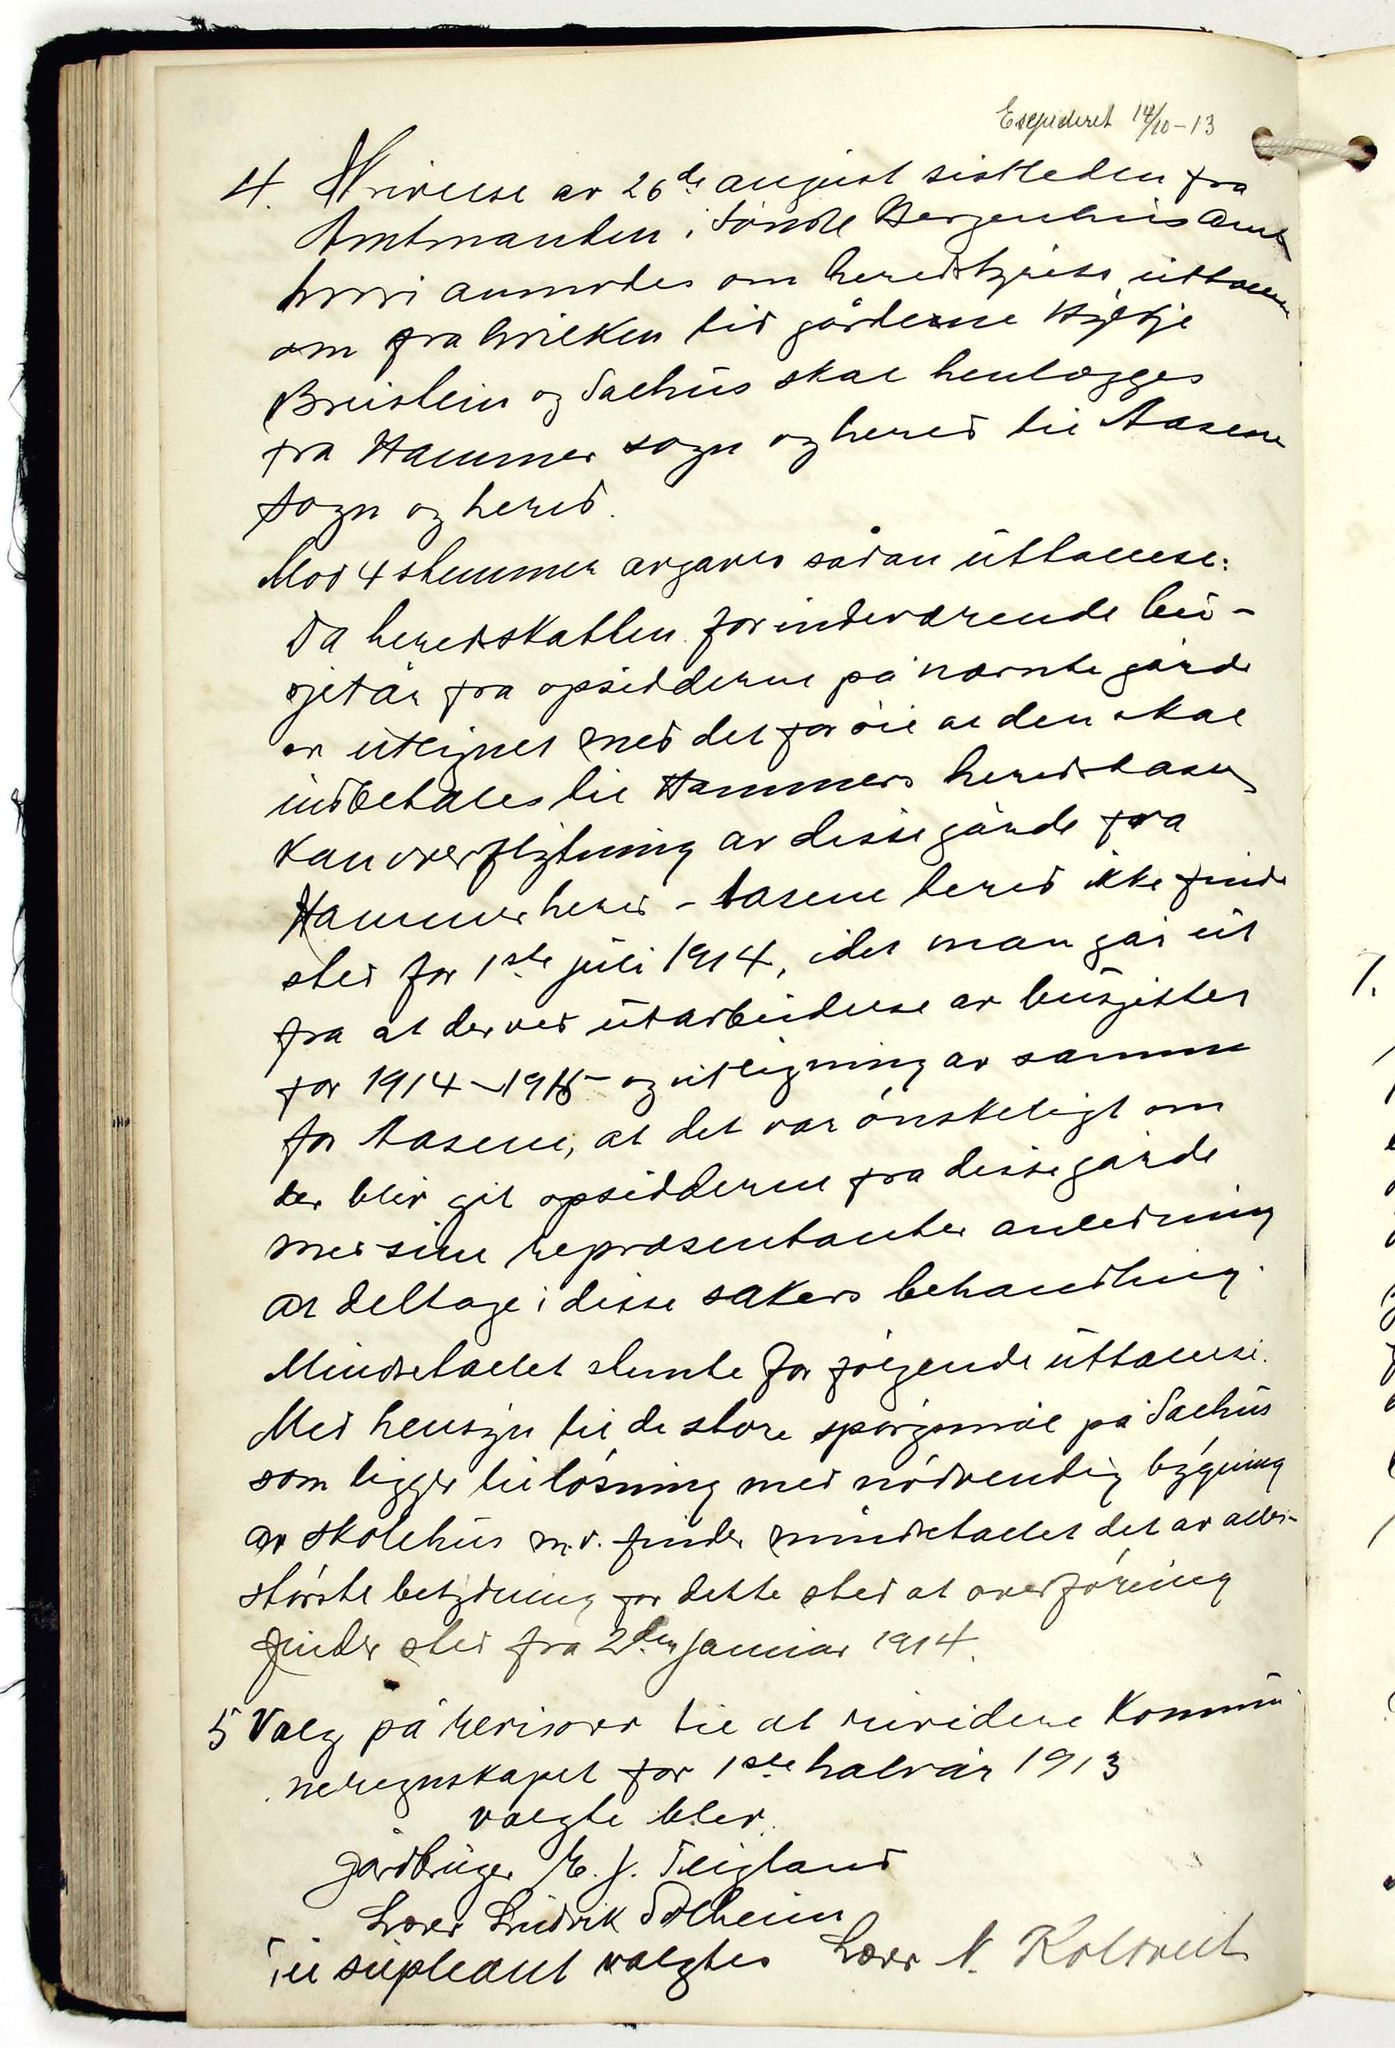 Expideret 14/10-13
4. Skrivelse av 26de august sistleden fra
Amtmanden i Søndre Bergenhus Amt
hvori anmodes om heredstyrets uttalelse
om fra hvilken tid gårdene Hylkje
Breistein og Salhus skal henlægges
fra Hammer sogn og hered til Aasene
sogn og hered.
Mod 4 stemmer avgaves sådan uttalelse:
Da heredskatten for indeværende bud-
sjetår fra opsidderne på nævnte gårde
er utlignet med det for øie at den skal
indbetales til Hammers heredskasse
kan overflytning av disse gårde fra
Hammer hered - Aasene hered ikke finde
sted før 1ste juli 1914, idet man går ut
fra at der ved utarbeidelse av budsjettet
for 1914-1915 og utligning av samme
for Aasene, at det var ønskeligt om
der blir git opsidderne fra disse gårde
med sine repræsentanter anledning
at deltage i disse sakers behandling.
Mindretallet stemte for følgende uttalelse.
Med hensyn til de store spørgsmål på Salhus
som ligger til løsning med nødvendig bygning
av skolehus m.v. finder mindretallet det av aller-
største betydning for dette sted at overføring
finder sted fra 2den januar 1914.
5 Valg på revisorer til at revidere kommu
neregnskapet for 1ste halvår 1913
valgte blev.
Gårdbruger E. J. Teigland
Lærer Ludvik Solheim
Til supleant valgtes Lærer N. Koltveit
7.